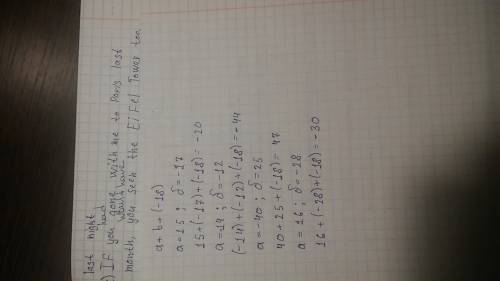 last night
had
) If you gone with me to Paris last
would have
month, you seek the Eifel Tower too.
a + b + (-18)
a = 15 ; b = -17
15 + (-17) + (-18) = -20
a = 14 ; b = -12
(-14) + (-12) + (-18) = -44
a = -40 ; b = 25
40 + 25 + (-18) = 47
a = 16 ; b = -28
16 + (-28) + (-18) = -30